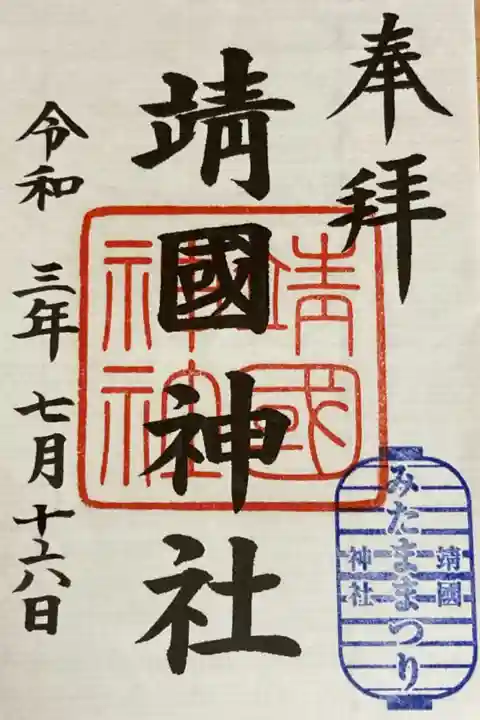 奉拝
靖國神社
靖國
神社
令和 三年 七月 十六日
靖國
みたままつり
神社